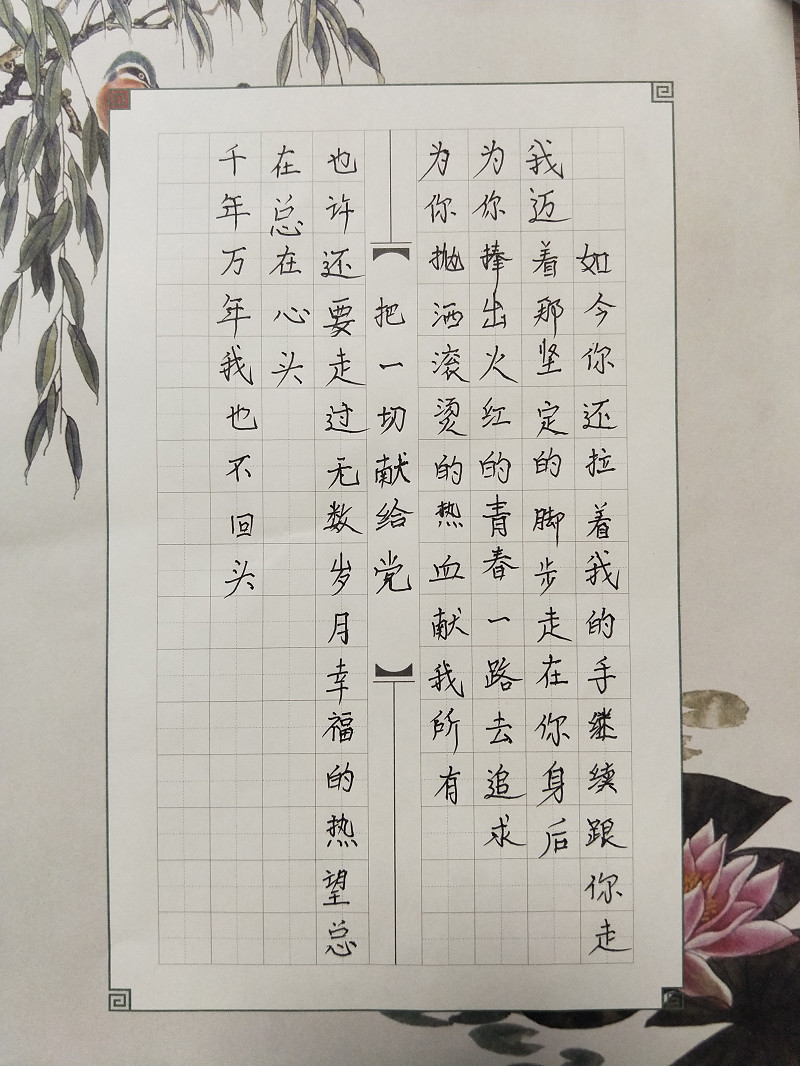 如今你还拉着我的手继续跟你走
我迈着那坚定的脚步走在你身后
为你捧出火红的青春一路去追求
为你抛洒滚烫的热血献我所有
把一切献给党
也许还要走过无数岁月幸福的热望总
在总在心头
千年万年我也不回头